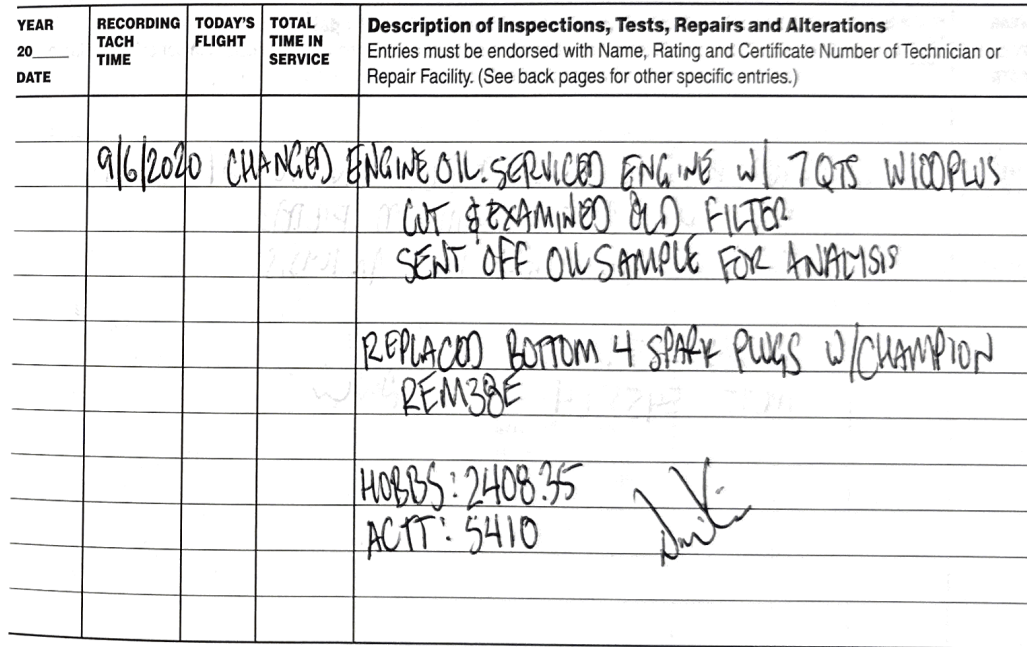 YEAR
20____
DATE
RECORDING
TACH
TIME
TODAY'S
FLIGHT
TOTAL
TIME IN
SERVICE
Description of Inspections, Tests, Repairs and Alterations
Entries must be endorsed with Name, Rating and Certificate Number of Technician or
Repair Facility. (See back pages for other specific entries.)
9/6/2020 CHANGED ENGINE OIL. SERVICED ENGINE W/ 7 QTS W100PLUS
CUT & EXAMINED OLD FILTER
SENT OFF OIL SAMPLE FOR ANALYSIS
REPLACED BOTTOM 4 SPARK PLUGS W/CHAMPION
REM38E
HOBBS: 2408.35
ACTT: 5410